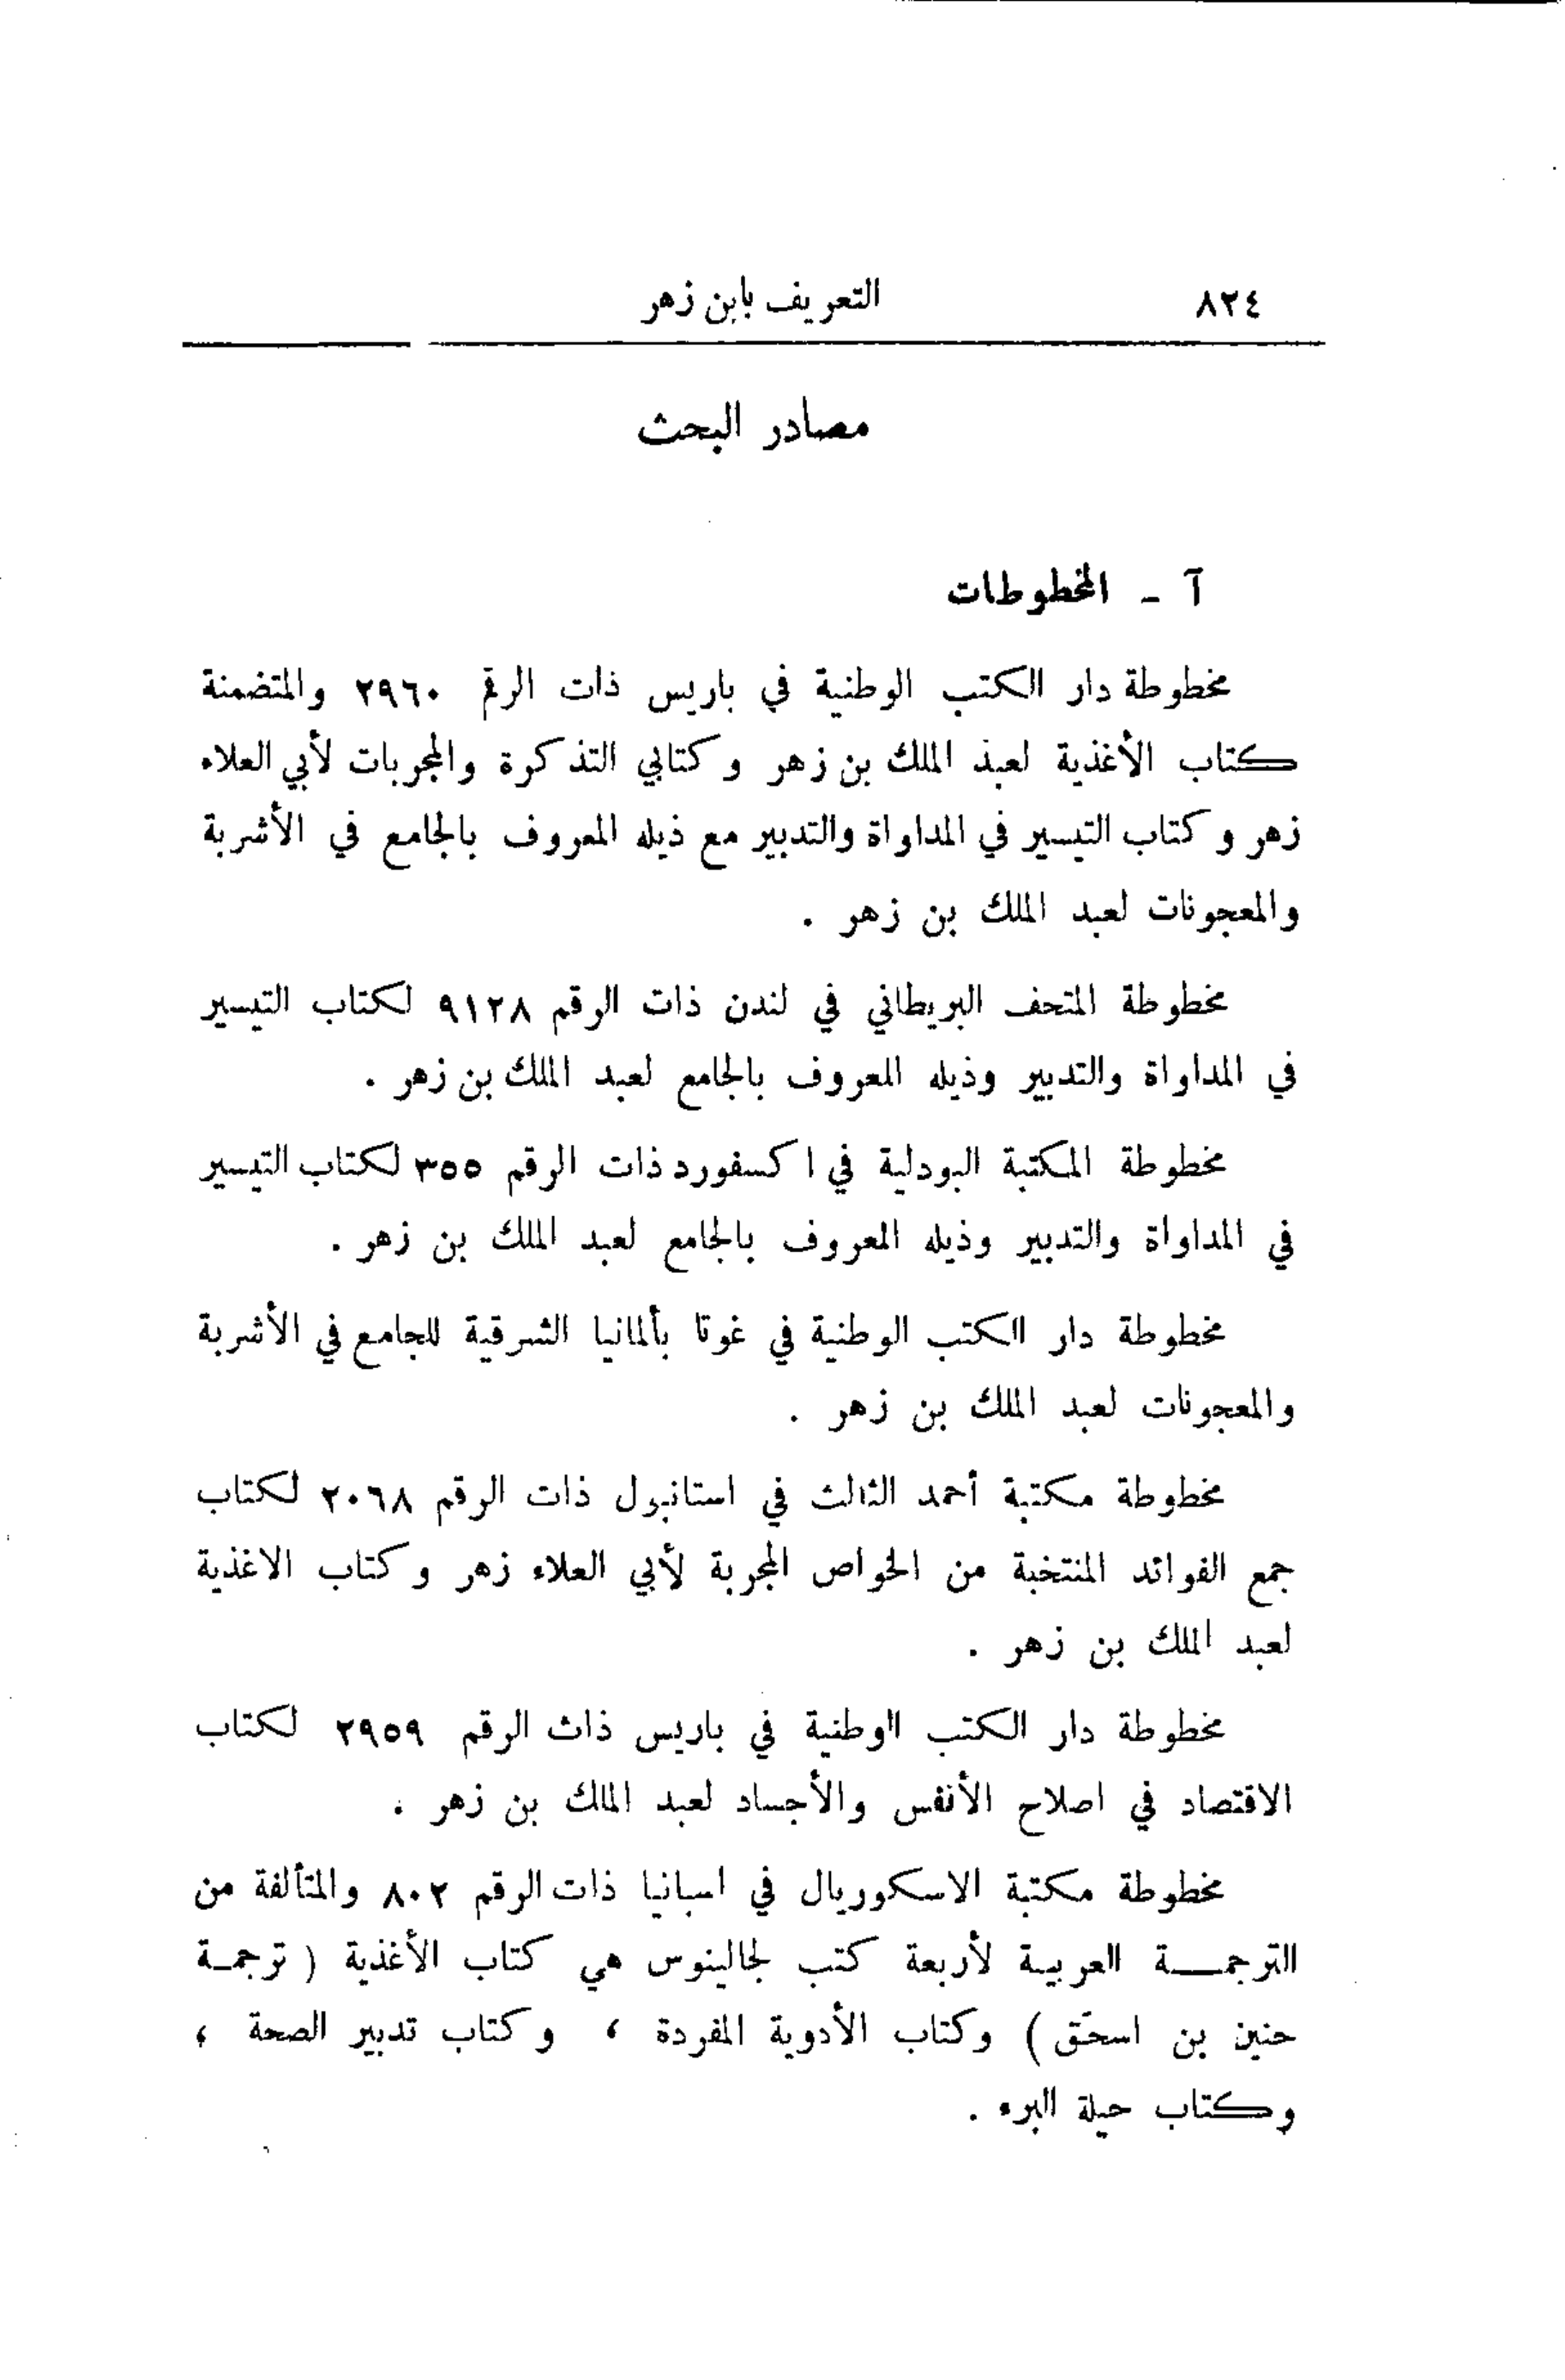 ٨٢٤ التعريف بابن زهر
مصادر البحث
آ - المخطوطات
مخطوطة دار الكتب الوطنية في باريس ذات الرقم ٢٩٦٠ والمتضمنة
كتاب الأغذية لعبد الملك بن زهر وكتابي التذكرة والمجربات لأبي العلاء
زهر وكتاب التيسير في المداواة والتدبير مع ذيله المعروف بالجامع في الأشربة
والمعجونات لعبد الملك بن زهر .
مخطوطة المتحف البريطاني في لندن ذات الرقم ٩١٢٨ لكتاب التيسير
في المداواة والتدبير وذيله المعروف بالجامع لعبد الملك بن زهر .
مخطوطة المكتبة البودلية في اكسفورد ذات الرقم ٣٥٥ لكتاب التيسير
في المداواة والتدبير وذيله المعروف بالجامع لعبد الملك بن زهر .
مخطوطة دار الكتب الوطنية في غوتا بألمانيا الشرقية للجامع في الأشربة
والمعجونات لعبد الملك بن زهر .
مخطوطة مكتبة أحمد الثالث في استانبول ذات الرقم ٢٠٦٨ لكتاب
جمع الفوائد المنتخبة من الخواص المجربة لأبي العلاء زهر وكتاب الاغذية
لعبد الملك بن زهر .
مخطوطة دار الكتب الوطنية في باريس ذاث الرقم ٢٩٥٩ لكتاب
الاقتصاد في اصلاح الأنفس والأجساد لعبد الملك بن زهر .
مخطوطة مكتبة الاسكوريال في اسبانيا ذات الرقم ٨٠٢ والمتألفة من
الترجمة العربية لأربعة كتب لجالينوس هي كتاب الأغذية ( ترجمة
حنين بن اسحق ) وكتاب الأدوية المفردة ، وكتاب تدبير الصحة ،
وكتاب حيلة البرء .